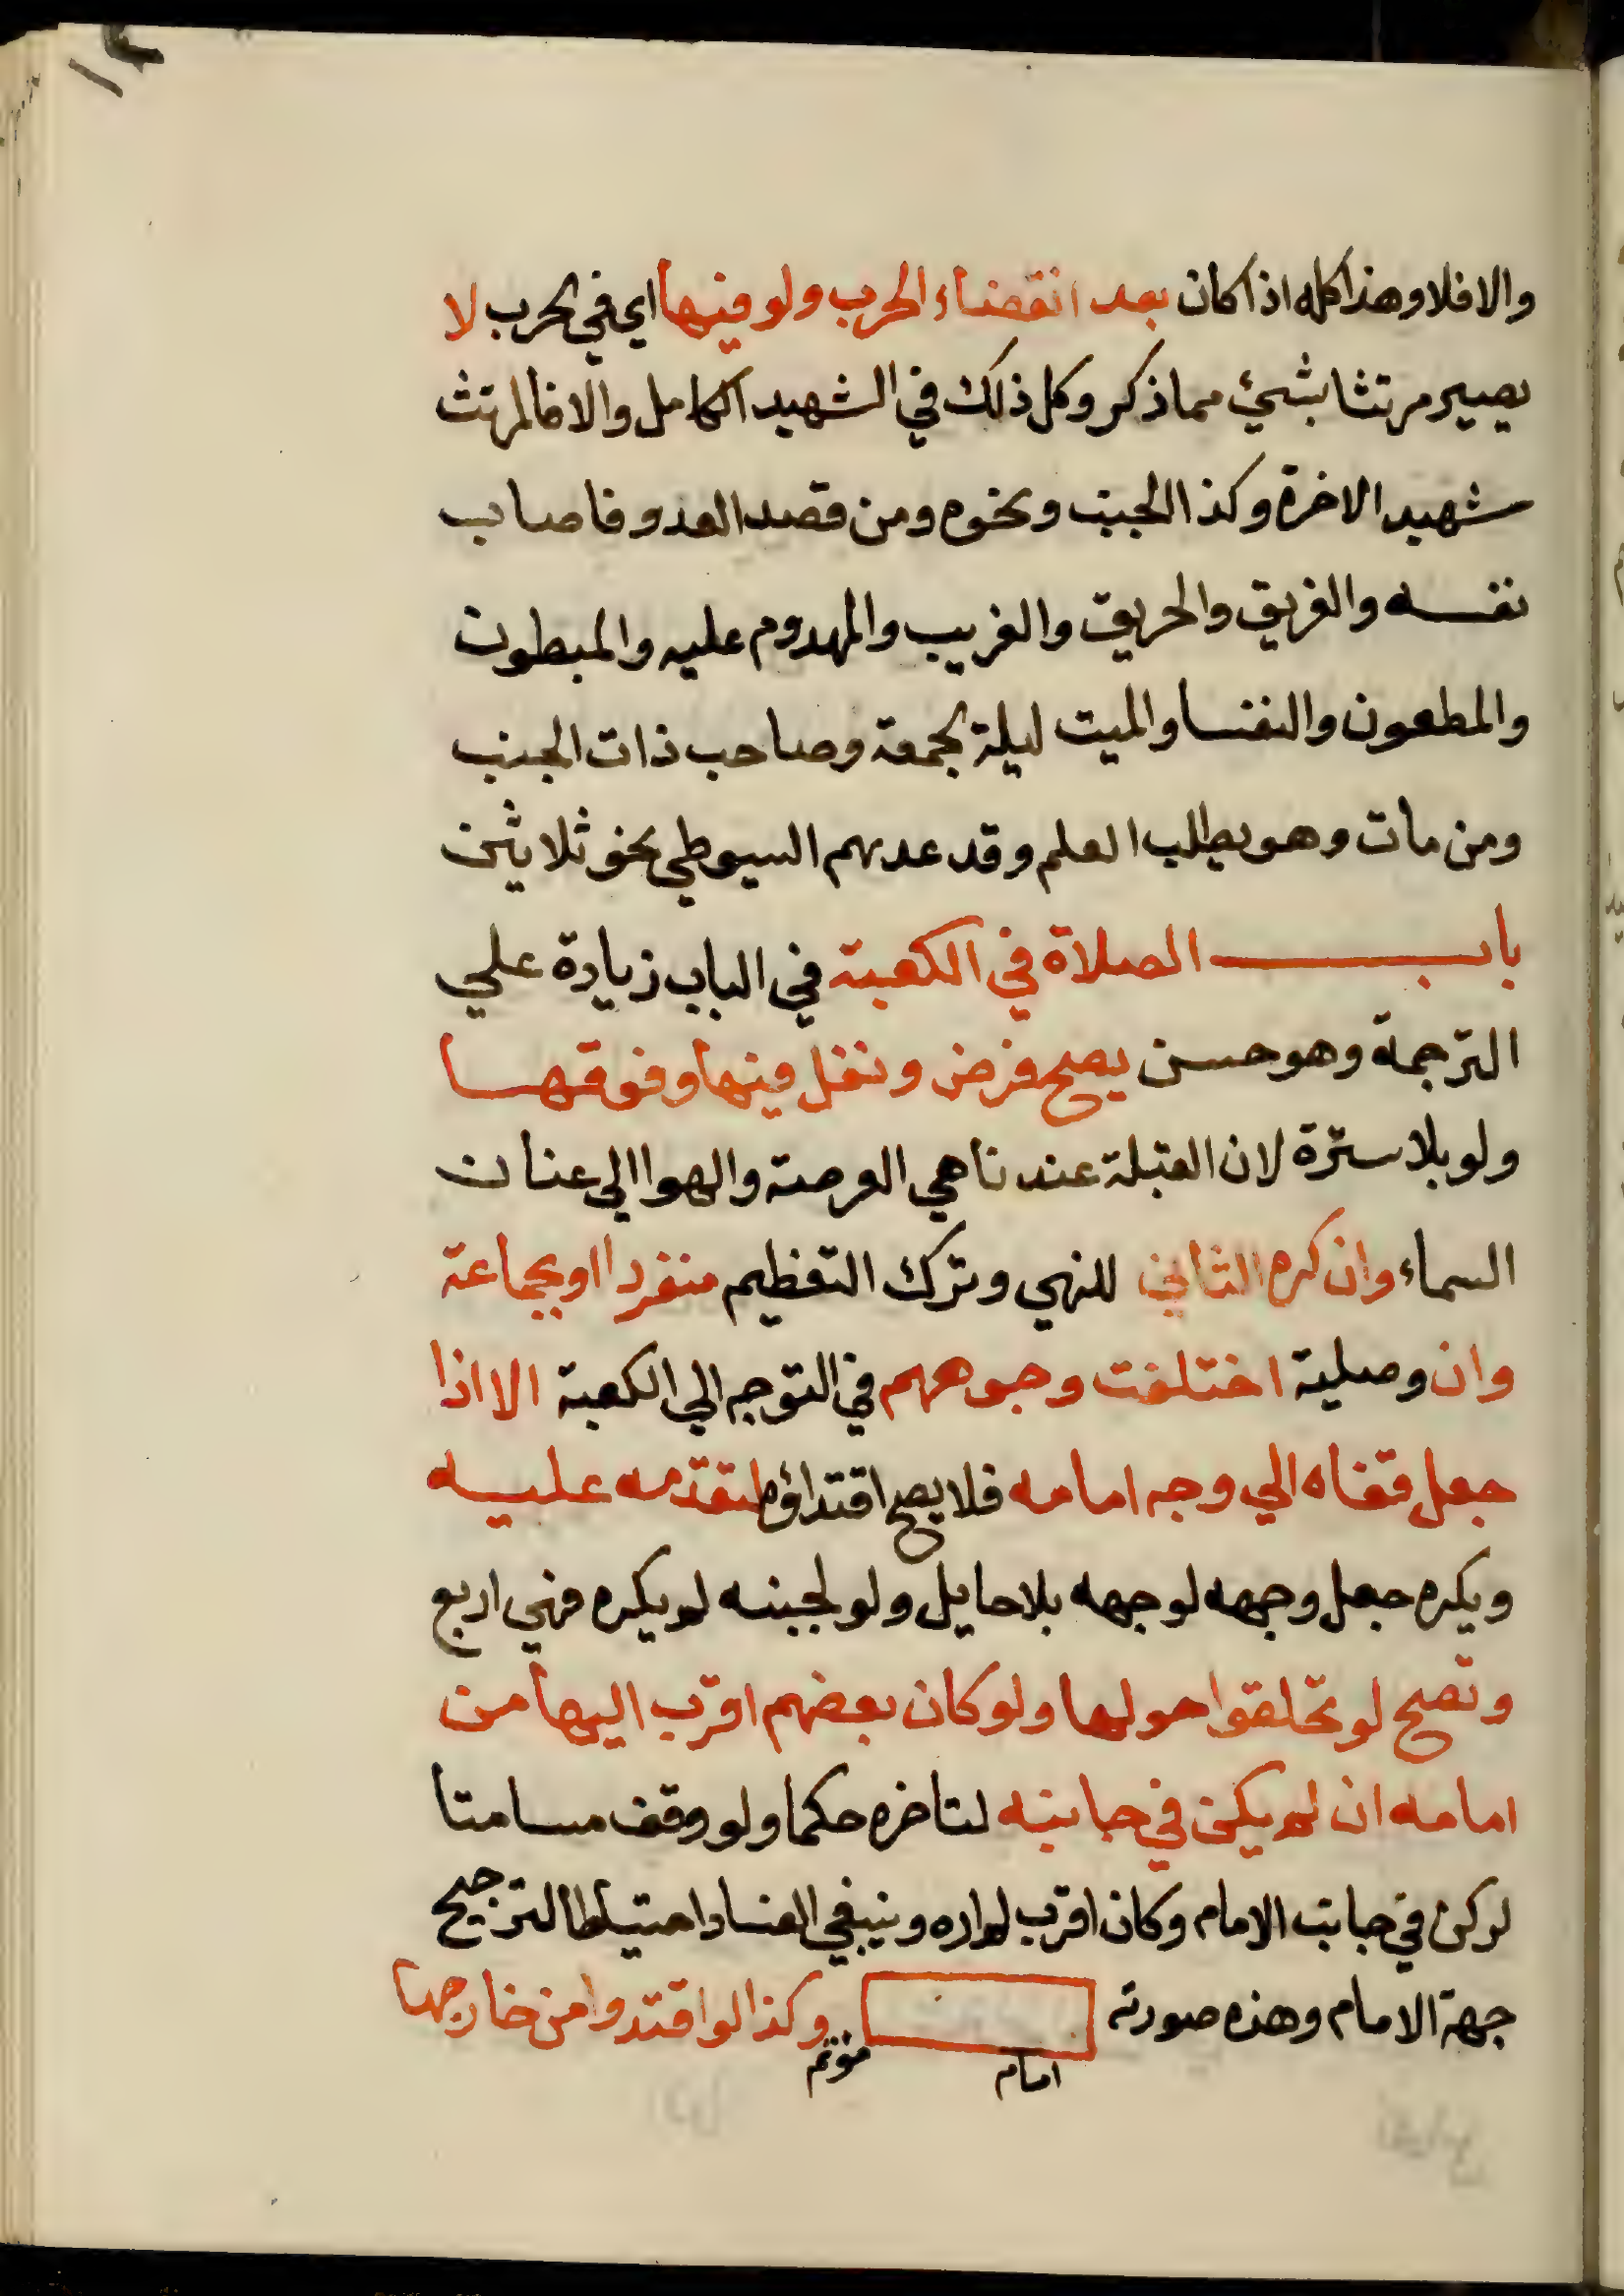 والا فلا وهذا كله اذا كان بعد انقضاء الحرب ولو فيها اي في الحرب لا
يصير مرتثا بشئ مما ذكر وكل ذلك في الشهيد الكامل والا فالمرتث
شهيد الاخرة وكذا الجنب ونحوه ومن قصد العدو فاصاب
نفسه والغريق والحريق والغريب والمهدوم عليه والمبطون
والمطعون والنفسا والميت ليلة الجمعة وصاحب ذات الجنب
ومن مات وهو يطلب العلم وقد عدهم السيوطي نحو ثلاثين
باب الصلاة في الكعبة في الباب زيادة علي
الترجمة وهو حسن يصح فرض ونفل فيها وفوقها
ولو بلا سترة لان القبلة عندنا هي العرصة والهوا الي عنان
السماء وان كره الثاني للنهي وترك التعظيم منفردا او بجماعة
وان وصلية اختلفت وجوههم في التوجه الي الكعبة الا اذا
جعل قفاه الي وجه امامه فلا يصح اقتداؤه لتقدمه عليه
ويكره جعل وجهه لوجهه بلا حايل ولو لجنبه لم يكره فهي اربع
وتصح لو تحلقوا حولها ولو كان بعضهم اقرب اليها من
امامه ان لم يكن في جانبه لتاخره حكما ولو وقف مسامتا
لركن في جانب الامام وكان اقرب لم اره وينبغي الفساد احتياطا لترجيح
جهة الامام وهذه صورته وكذا لو اقتدوا من خارجها
امام مؤتم